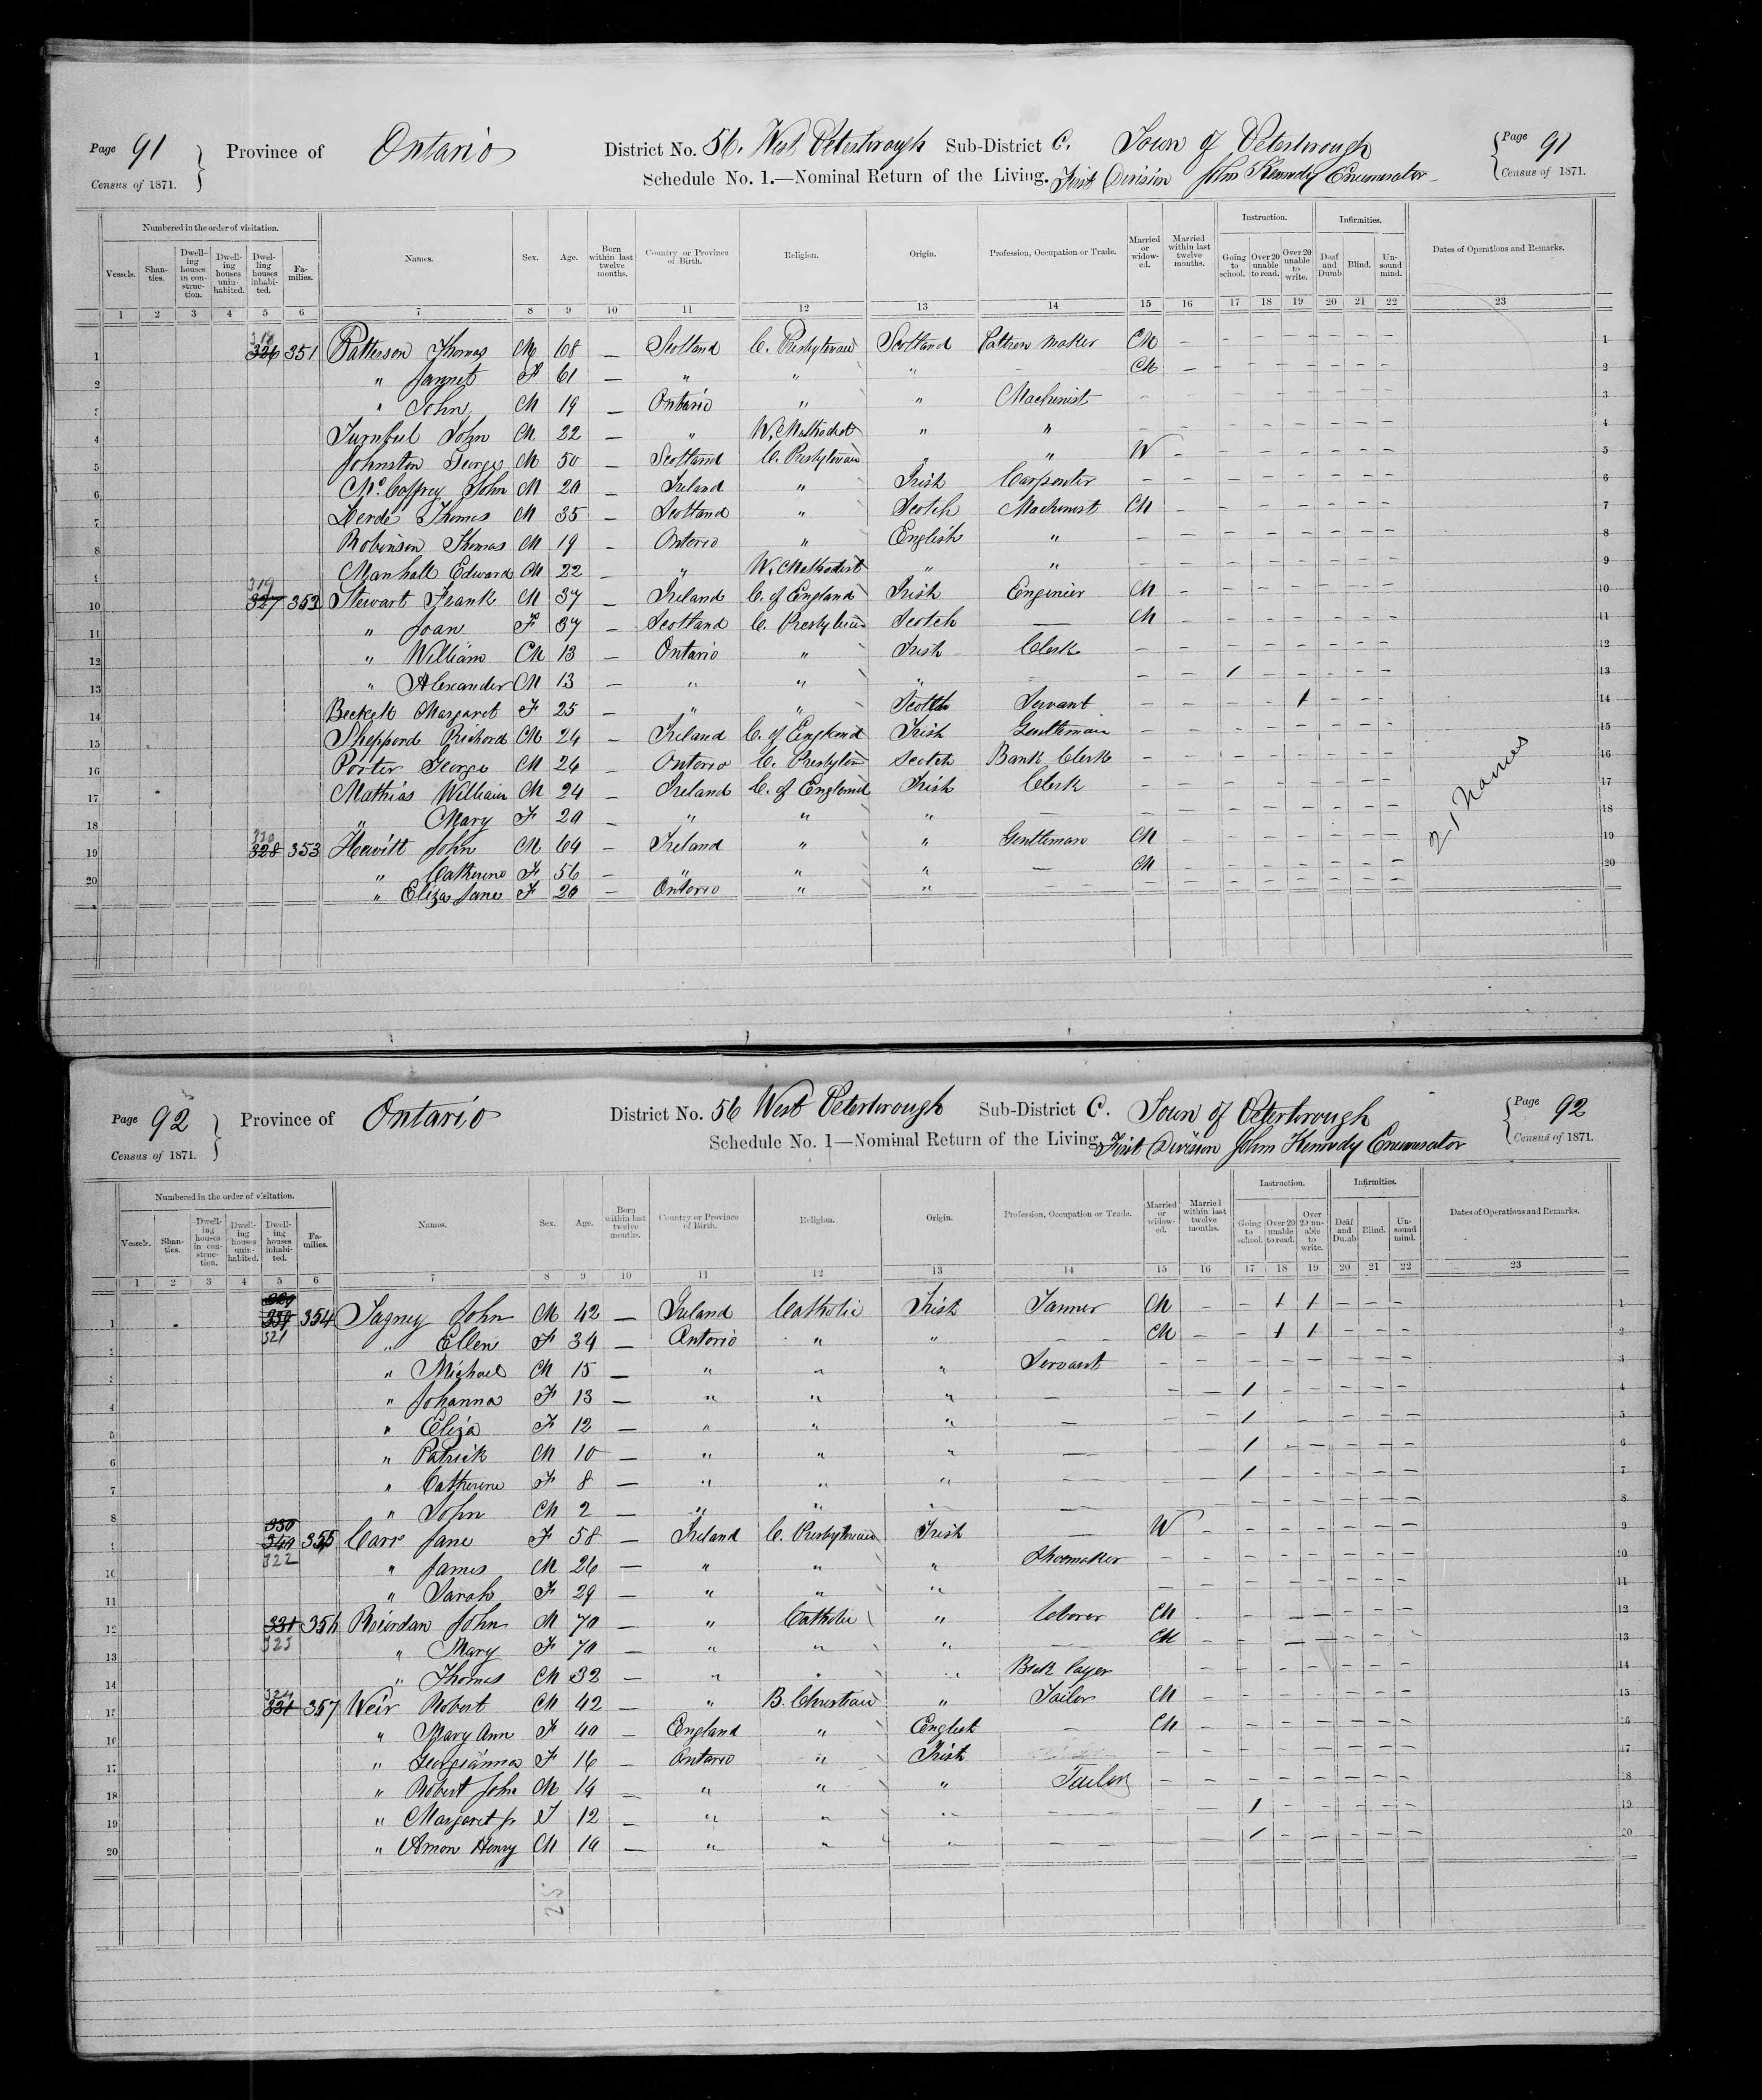 Page 91 Province of Ontario District No. 56. West Peterborough Sub-District C. Town of Peterborough Page 91
Census of 1871. Schedule No. 1.—Nominal Return of the Living. First Division John Kennedy Enumerator Census of 1871.
Numbered in the order of visitation. Instruction. Infirmities.
Vessels. Shanties. Dwelling houses in construction. Dwelling houses uninhabited. Dwelling houses inhabited. Families. Names. Sex. Age. Born within last twelve months. Country or Province of Birth. Religion. Origin. Profession, Occupation or Trade. Married or widowed. Married within last twelve months. Going to school. Over 20 unable to read. Over 20 unable to write. Deaf and Dumb Blind. Unsound mind. Dates of Operations and Remarks.
1 2 3 4 5 6 7 8 9 10 11 12 13 14 15 16 17 18 19 20 21 22 23
1 318 326 351 Patterson Thomas M 68 — Scotland C. Presbyterian Scotland Pattren maker M — — — — — — — 1
2 " Jannet F 61 — " " " — M — — — — — — — 2
3 " John M 19 — Ontario " " Machinist — — — — — — — — 3
4 Turnbul John M 22 — " W. Methodist " " — — — — — — — — 4
5 Johnston George M 50 — Scotland C. Presbyterian " " W — — — — — — — 5
6 McCaffrey John M 20 — Ireland " Irish Carpenter — — — — — — — — 6
7 Thomas M 35 — Scotland " Scotch Machinist M — — — — — — — 7
8 Robinson Thomas M 19 — Ontario " English " — — — — — — — — 8
9 Marshall Edward M 22 — " W. Methodist " " — — — — — — — — 9
10 319 327 352 Stewart Frank M 37 — Ireland C. of England Irish Enginier M — — — — — — — 10
11 " Joan F 37 — Scotland C. Presbyterian Scotch — M — — — — — — — 11
12 " William M 13 — Ontario " Irish Clerk — — — — — — — — 12
13 " Alexander M 13 — " " " — — — 1 — — — — — 13
14 Beckett Margaret F 25 — " " Scotch Servant — — — — 1 — — — 14
15 Sheppord Richard M 24 — Ireland C. of England Irish Gentleman — — — — — — — — 15
16 Porter George M 24 — Ontario C. Presbyterian Scotch Bank Clerk — — — — — — — — 16
17 Mathias William M 24 — Ireland C. of England Irish Clerk — — — — — — — — 17
18 " Mary F 20 — " " " — — — — — — — — — 18
19 320 328 353 Hewitt John M 64 — Ireland " " Gentleman M — — — — — — — 19
20 " Catherine F 56 — " " " — M — — — — — — — 20
" Eliza Jane F 20 — Ontario " " — — — — — — — — —
21 Names
Page 92 Province of Ontario District No. 56 West Peterborough Sub-District C. Town of Peterborough Page 92
Census of 1871. Schedule No. 1—Nominal Return of the Living. First Division John Kennedy Enumerator Census of 1871.
Numbered in the order of visitation. Instruction. Infirmities.
Vessels. Shanties. Dwelling houses in construction. Dwelling houses uninhabited. Dwelling houses inhabited. Families. Names. Sex. Age. Born within last twelve months. Country or Province of Birth. Religion. Origin. Profession, Occupation or Trade. Married or widowed. Married within last twelve months. Going to school. Over 20 unable to read. Over 20 unable to write. Deaf and Dumb Blind. Unsound mind. Dates of Operations and Remarks.
1 2 3 4 5 6 7 8 9 10 11 12 13 14 15 16 17 18 19 20 21 22 23
1 321 354 John M 42 — Ireland Catholic Irish Tanner M — — 1 1 — — — 1
2 " Ellen F 34 — Ontario " " — M — — 1 1 — — — 2
3 " Michael M 15 — " " " Servant — — — — — — — — 3
4 " Johanna F 13 — " " " — — — 1 — — — — — 4
5 " Eliza F 12 — " " " — — — 1 — — — — — 5
6 " Patrick M 10 — " " " — — — 1 — — — — — 6
7 " Catherine F 8 — " " " — — — 1 — — — — — 7
8 " John M 2 — " " " — — — — — — — — — 8
9 330 322 355 Carr Jane F 58 — Ireland C. Presbyterian Irish — W — — — — — — — 9
10 " James M 26 — " " " Shoemaker — — — — — — — — 10
11 " Sarah F 29 — " " " — — — — — — — — — 11
12 331 323 356 Reiordan John M 70 — " Catholic " laborer M — — — — — — — 12
13 " Mary F 70 — " " " — M — — — — — — — 13
14 " Thomas M 32 — " " " Brick layer — — — — — — — — 14
15 324 331 357 Weir Robert M 42 — " B. Christian " Tailor M — — — — — — — 15
16 " Mary Ann F 40 — England " English — M — — — — — — — 16
17 " Georgianna F 16 — Ontario " Irish — — — — — — — — 17
18 " Robert John M 14 — " " " Tailor — — — — — — — — 18
19 " Margaret F 12 — " " " — — — 1 — — — — — 19
20 " Amon Henry M 10 — " " " — — — 1 — — — — — 20
25